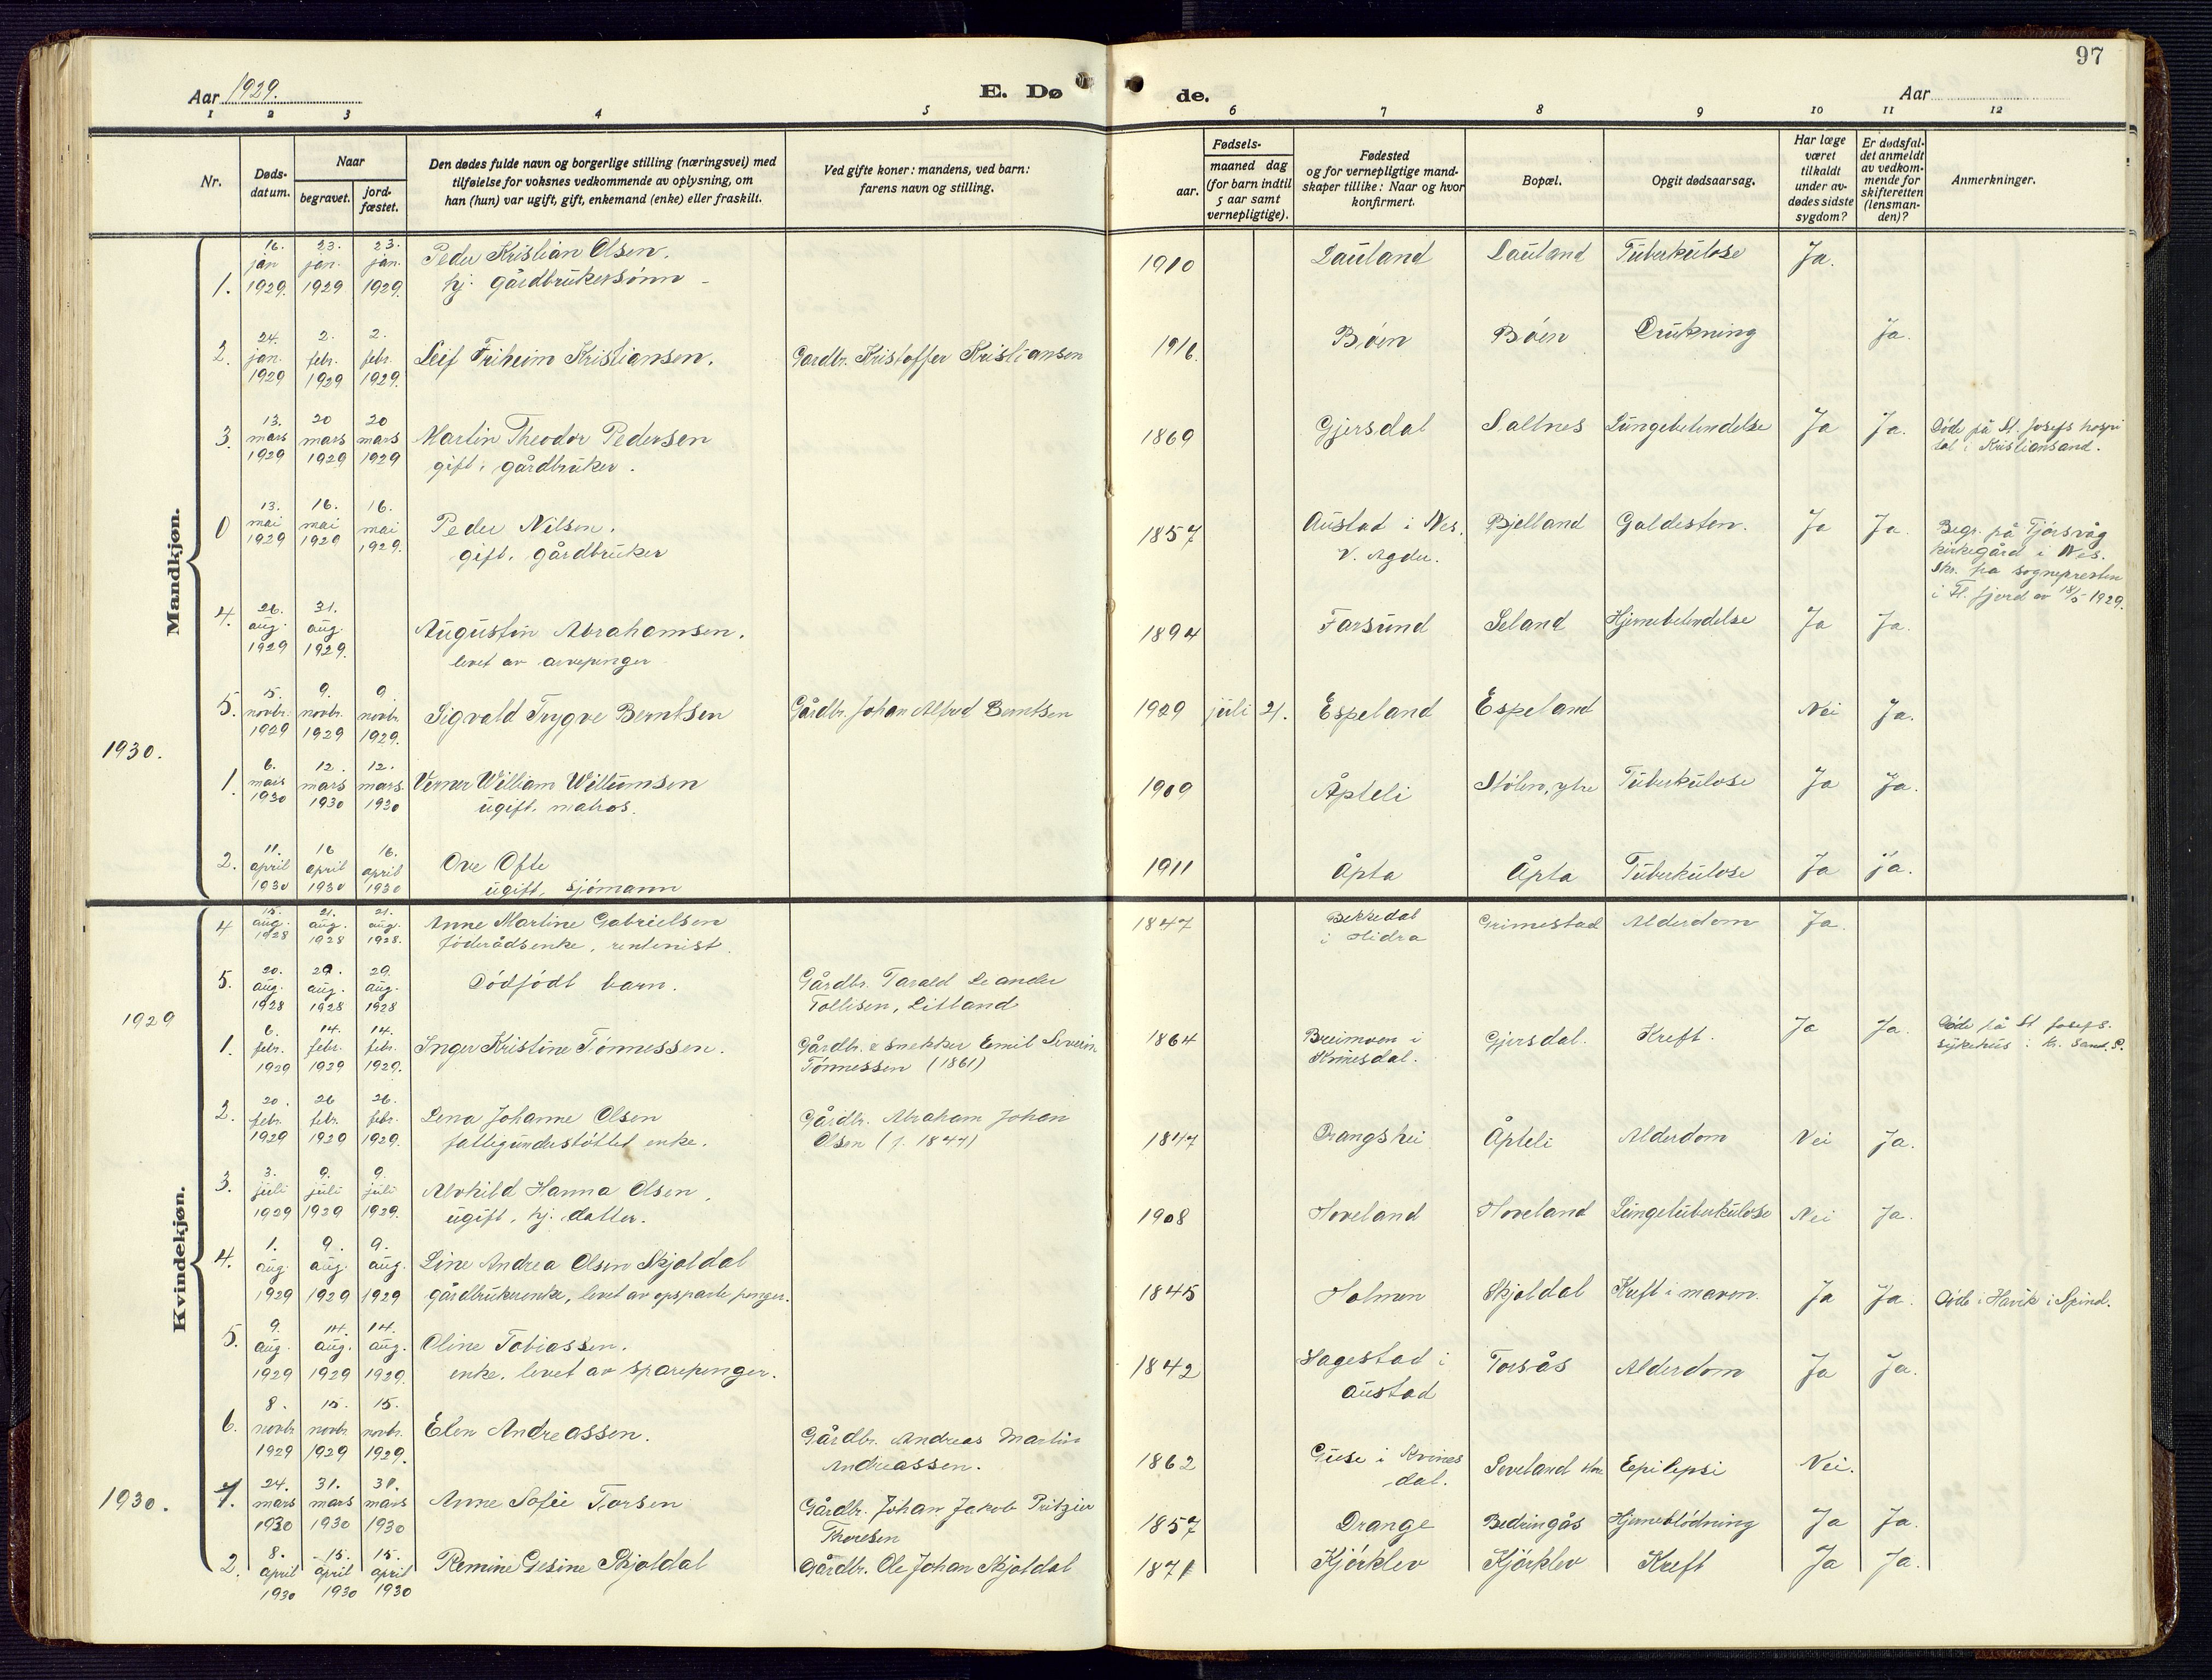 97
Aar 1929.
E. Dø de.
Aar
1 2 3 4 5 6 7 8 9 10 11 12
Nr.
Døds-
datum.
Naar
begravet.
jord-
fæstet.
Den dødes fulde navn og borgerlige stilling (næringsvei) med
tilføielse for voksnes vedkommende av oplysning, om
han (hun) var ugift, gift, enkemand (enke) eller fraskilt.
Ved gifte koner: mandens, ved barn:
farens navn og stilling.
Fødsels-
aar.
maaned dag
(for barn indtil
5 aar samt
vernepligtige).
Fødested
og for vernepligtige mand-
skaper tillike: Naar og hvor
konfirmert.
Bopæl.
Opgit dødsaarsag.
Har læge
været
tilkaldt
under av-
dødes sidste
sygdom?
Er dødsfal-
det anmeldt
av vedkom-
mende for
skifteretten
(lensman-
den)?
Anmerkninger.
Mandkjøn.
1. 16. jan 1929. 23. jan. 1929 23. jan. 1929. Peder Kristian Olsen. 1910 Lauland Lauland Tuberkulose Ja.
hj. gårdbrukersønn
2. 24. jan. 1929 2. febr. 1929 2. febr. 1929. Leif Friheim Kristiansen. Gardbr. Kristoffer Kristiansen 1916. Bøen Bøen Drukning Ja.
3. 13. mars 1929 20 mars 1929 20 mars 1929 Martin Theodor Pedersen 1869 Gjersdal Saltnes Lungebetendelse Ja Ja. Døde på St. Josefs hospi
gift, gårdbruker. tal i Kristiansand.
0 13. mai 1929 16. mai 1929 16. mai 1929. Peder Nilsen. 1857 Austad i Nes. Bjelland Galdesten. Ja Ja. Begr. på Tjørsvåg
gift, gårdbruker V. Agder. kirkegård i Nes.
Skr. fra sognepresten
i Fl. fjord av 18/5 1929.
4. 26. aug. 1929 31. aug. 1929. Augustin Abrahamsen. 1894 Farsund Seland Hjernebetendelse Ja Ja.
levet av arvepenger
5. 5. novbr. 1929 9. novbr. 1929 9. novbr. 1929. Sigvald Trygve Berntsen Gårdbr. Johan Alfred Berntsen 1929 juli 21. Espeland Espeland Nei Ja.
1930.
1. 6. mars 1930 12. mars 1930 12. mars 1930 Verner William Williamsen 1909 Åpteli Stølen, ytre Tuberkulose Ja Ja.
ugift. matros.
2. 11. april 1930 16 april 1930 16. april 1930 Ove Ofte 1911 Åpta Åpta Tuberkulose Ja ja.
ugift, sjømann
Kvindekjøn.
4 15. aug. 1928 21. aug. 1928 21. aug. 1928. Anne Martine Gabrielsen 1847 Bekkedal Grimestad Alderdom Ja.
føderådsenke, rentenist. i Hidra
5. 20. aug. 1928 29. aug. 1928 29. aug. 1928 Dødfødt barn. Gårdbr. Tarald Leander
Tollisen, Litland
1929
1. 6. febr. 1929 14. febr. 1929 14. febr. 1929. Inger Kristine Tønnessen. Gårdbr. & snekker Emil Severin 1864 Breimoen i Gjersdal. Kreft. Ja Ja. Døde på St Josefs.
Tønnessen (1861) Kvinesdal. sykehus i Kr. sand. S.
2. 20. febr. 1929 26 febr. 1929 26. febr. 1929. Lena Johanne Olsen Gårdbr. Abraham Johan 1847 Drangshei Åpteli Alderdom Nei Ja.
fattigunderstøttet enke. Olsen (f. 1844)
3. 3. juli 1929 9. juli 1929 9. juli 1929. Alvhild Hanna Olsen. 1908 Hoveland Hoveland Lungetuberkulose Nei Ja.
ugift, hj. datter.
4. 1. aug. 1929 9. aug. 1929 9. aug. 1929 Line Andrea Olsen Skjoldal 1845 Holmen Skjoldal Kreft i maven. Ja Ja. Døde i Havik i Spind.
gårdbrukerenke, levet av opsparte penger.
5. 9. aug. 1929 14. aug. 1929 14. aug. 1929. Oline Tobiassen. 1842 Hagestad i Torsås Alderdom Ja Ja.
enke. levet av sparepenger. Austad
6. 8. novbr. 1929 15. novbr. 1929 15. novbr. 1929. Elen Andreassen. Gårdbr. Andreas Martin 1862 Guse i Kvines Epilepsi Nei.
Andreassen. dal.
1930.
1. 24. mars 1930 31. mars 1930 31. mars 1930 Anne Sofie Torsen Gårdbr. Johan Jakob Pritzier 1857 Drange Bedringås Hjerneblødning Ja Ja.
Thoresen
2. 8. april 1930 15. april 1930 15. april 1930 Remine Gesine Skjoldal Gårdbr. Ole Johan Skjoldal 1871 Kjørklev Kjørklev Kreft Ja Ja.